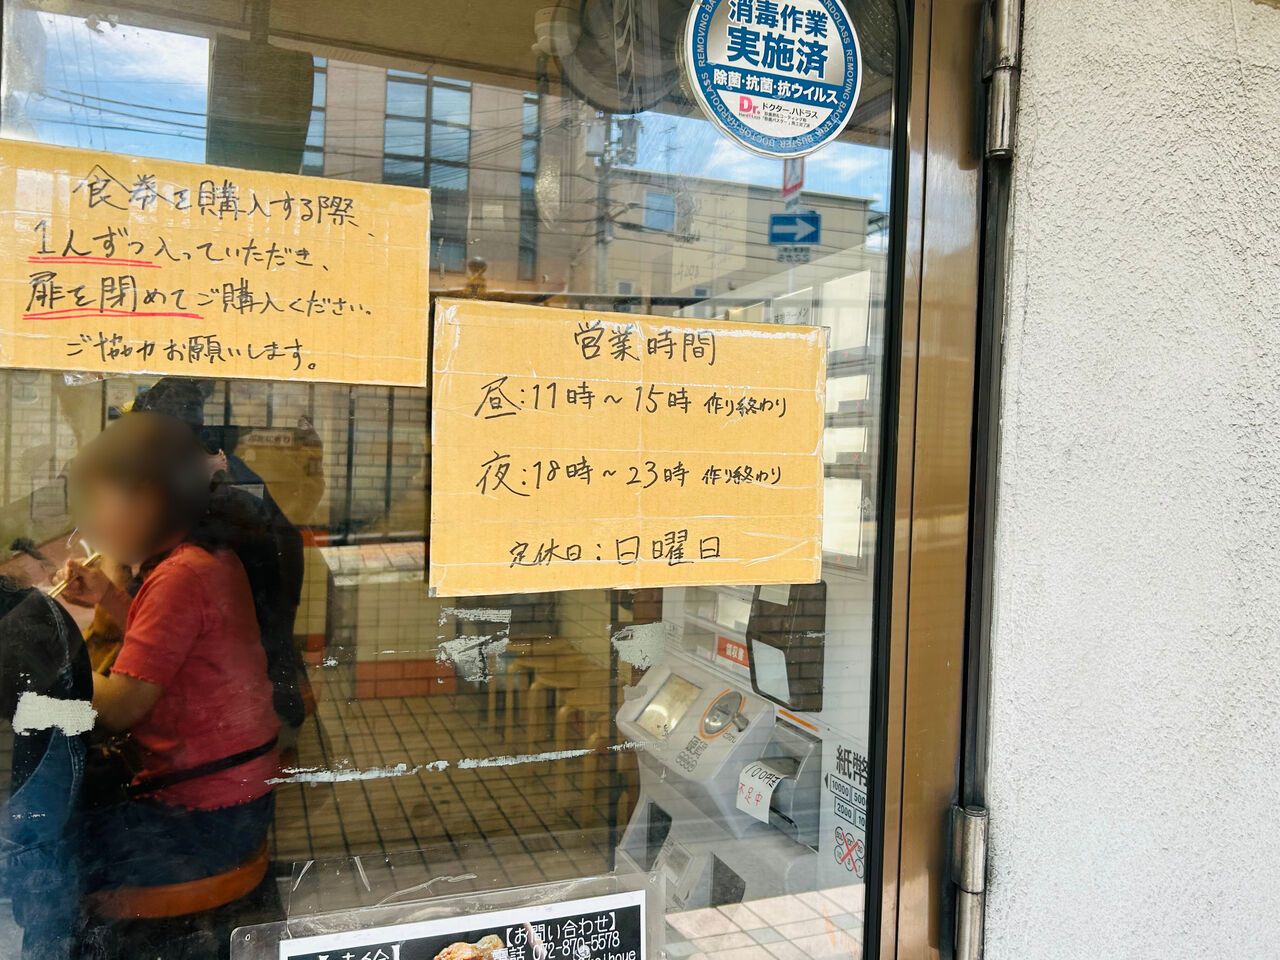 消毒作業
実施済
除菌・抗菌・抗ウイルス
Dr.
ドクター.ハドラス
食券を購入する際、
1人ずつ入っていただき、
扉を閉めてご購入ください。
ご協力お願いします。
営業時間
昼:11時～15時 作り終わり
夜:18時～23時 作り終わり
定休日:日曜日
領収書
100円玉
不足中
紙幣
10000
2000
【お問い合わせ】
電話 072-870-5578